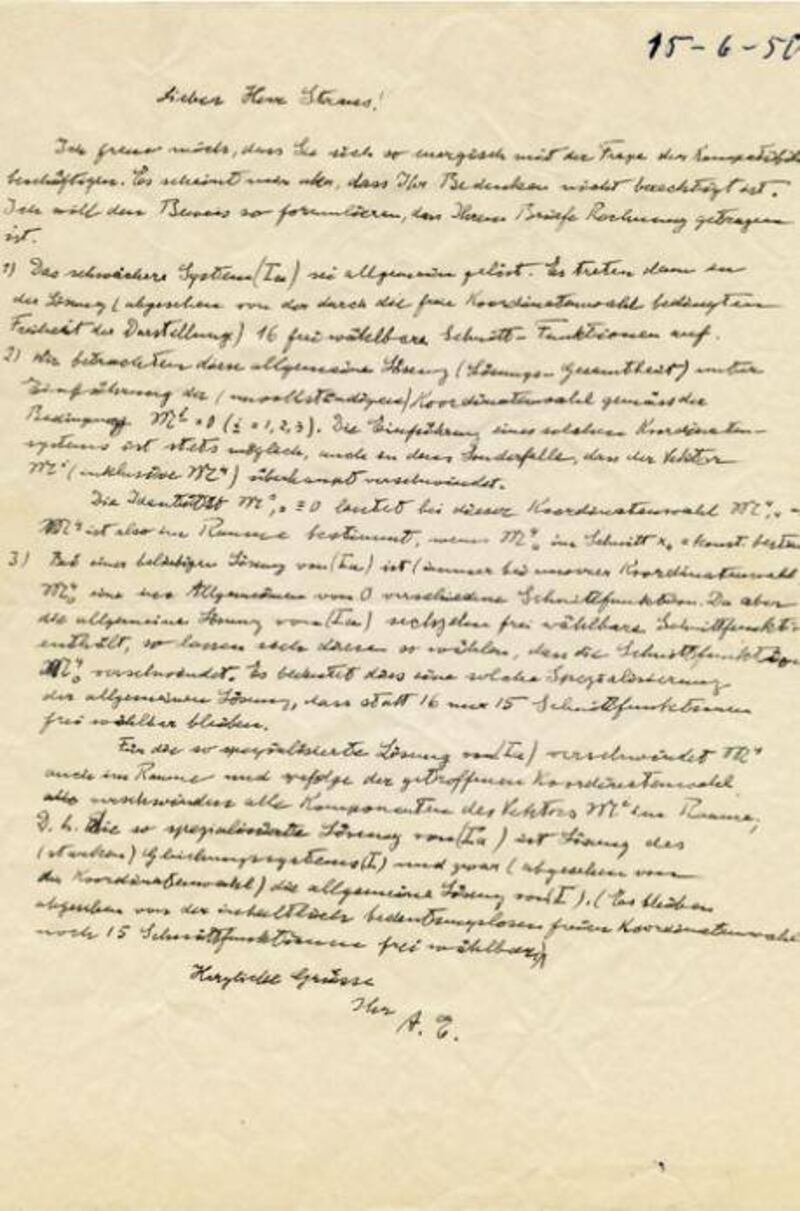 15-6-50
Lieber Herr Straus!
Ich freue mich, dass Sie sich so energisch mit der Frage der Kompatibilit
beschäftigen. Es scheint mir aber, dass Ihr Bedenken nicht berechtigt ist.
Ich will den Beweis so formulieren, dass Ihrem Briefe Rechnung getragen
ist.
1) Das schwächere System (Ia) sei allgemein gelöst. Es treten dann in
der Lösung (abgesehen von der durch die freie Koordinatenwahl bedingten
Freiheit der Darstellung) 16 frei wählbare Schnitt-Funktionen auf.
2) Wir betrachten diese allgemeine Lösung (Lösungs-Gesamtheit) unter
Einführung der (unvollständigen) Koordinatenwahl gemäss der
Bedingung 𝔐^i = 0 (i = 1, 2, 3). Die Einführung eines solchen Koordinaten-
systems ist stets möglich, auch in dem Sonderfalle, dass der Vektor
(inklusive 𝔐^4) überhaupt verschwindet.
Die Identität lautet bei dieser Koordinatenwahl
𝔐^4 ist also im Raume bestimmt, wenn im Schnitt = konst. bestim
3) Bei einer beliebigen Lösung von (Ia) ist (immer bei unserer Koordinatenwahl
eine im Allgemeinen von 0 verschiedene Schnittfunktion. Da aber
die allgemeine Lösung von (Ia) sechzehn frei wählbare Schnittfunkti-
enthält, so lassen sich diesen so wählen, dass die Schnittfunktion
verschwindet. Es bedeutet dies eine solche Spezialisierung
der allgemeinen Lösung, dass statt 16 nur 15 Schnittfunktionen
frei wählbar bleiben.
Für die so spezialisierte Lösung von (Ia) verschwindet 𝔐^4
auch im Raume und zufolge der getroffenen Koordinatenwahl
verschwinden alle Komponenten des Vektors im Raume,
D. h. die so spezialisierte Lösung von (Ia) ist Lösung des
(starken) Gleichungssystems (I) und zwar (abgesehen von
der Koordinatenwahl) die allgemeine Lösung von (I). (Es bleiben
abgesehen von der inhaltlich bedeutungslosen freien Koordinatenwahl
noch 15 Schnittfunktionen frei wählbar)
Herzliche Grüsse
Ihr
A. E.